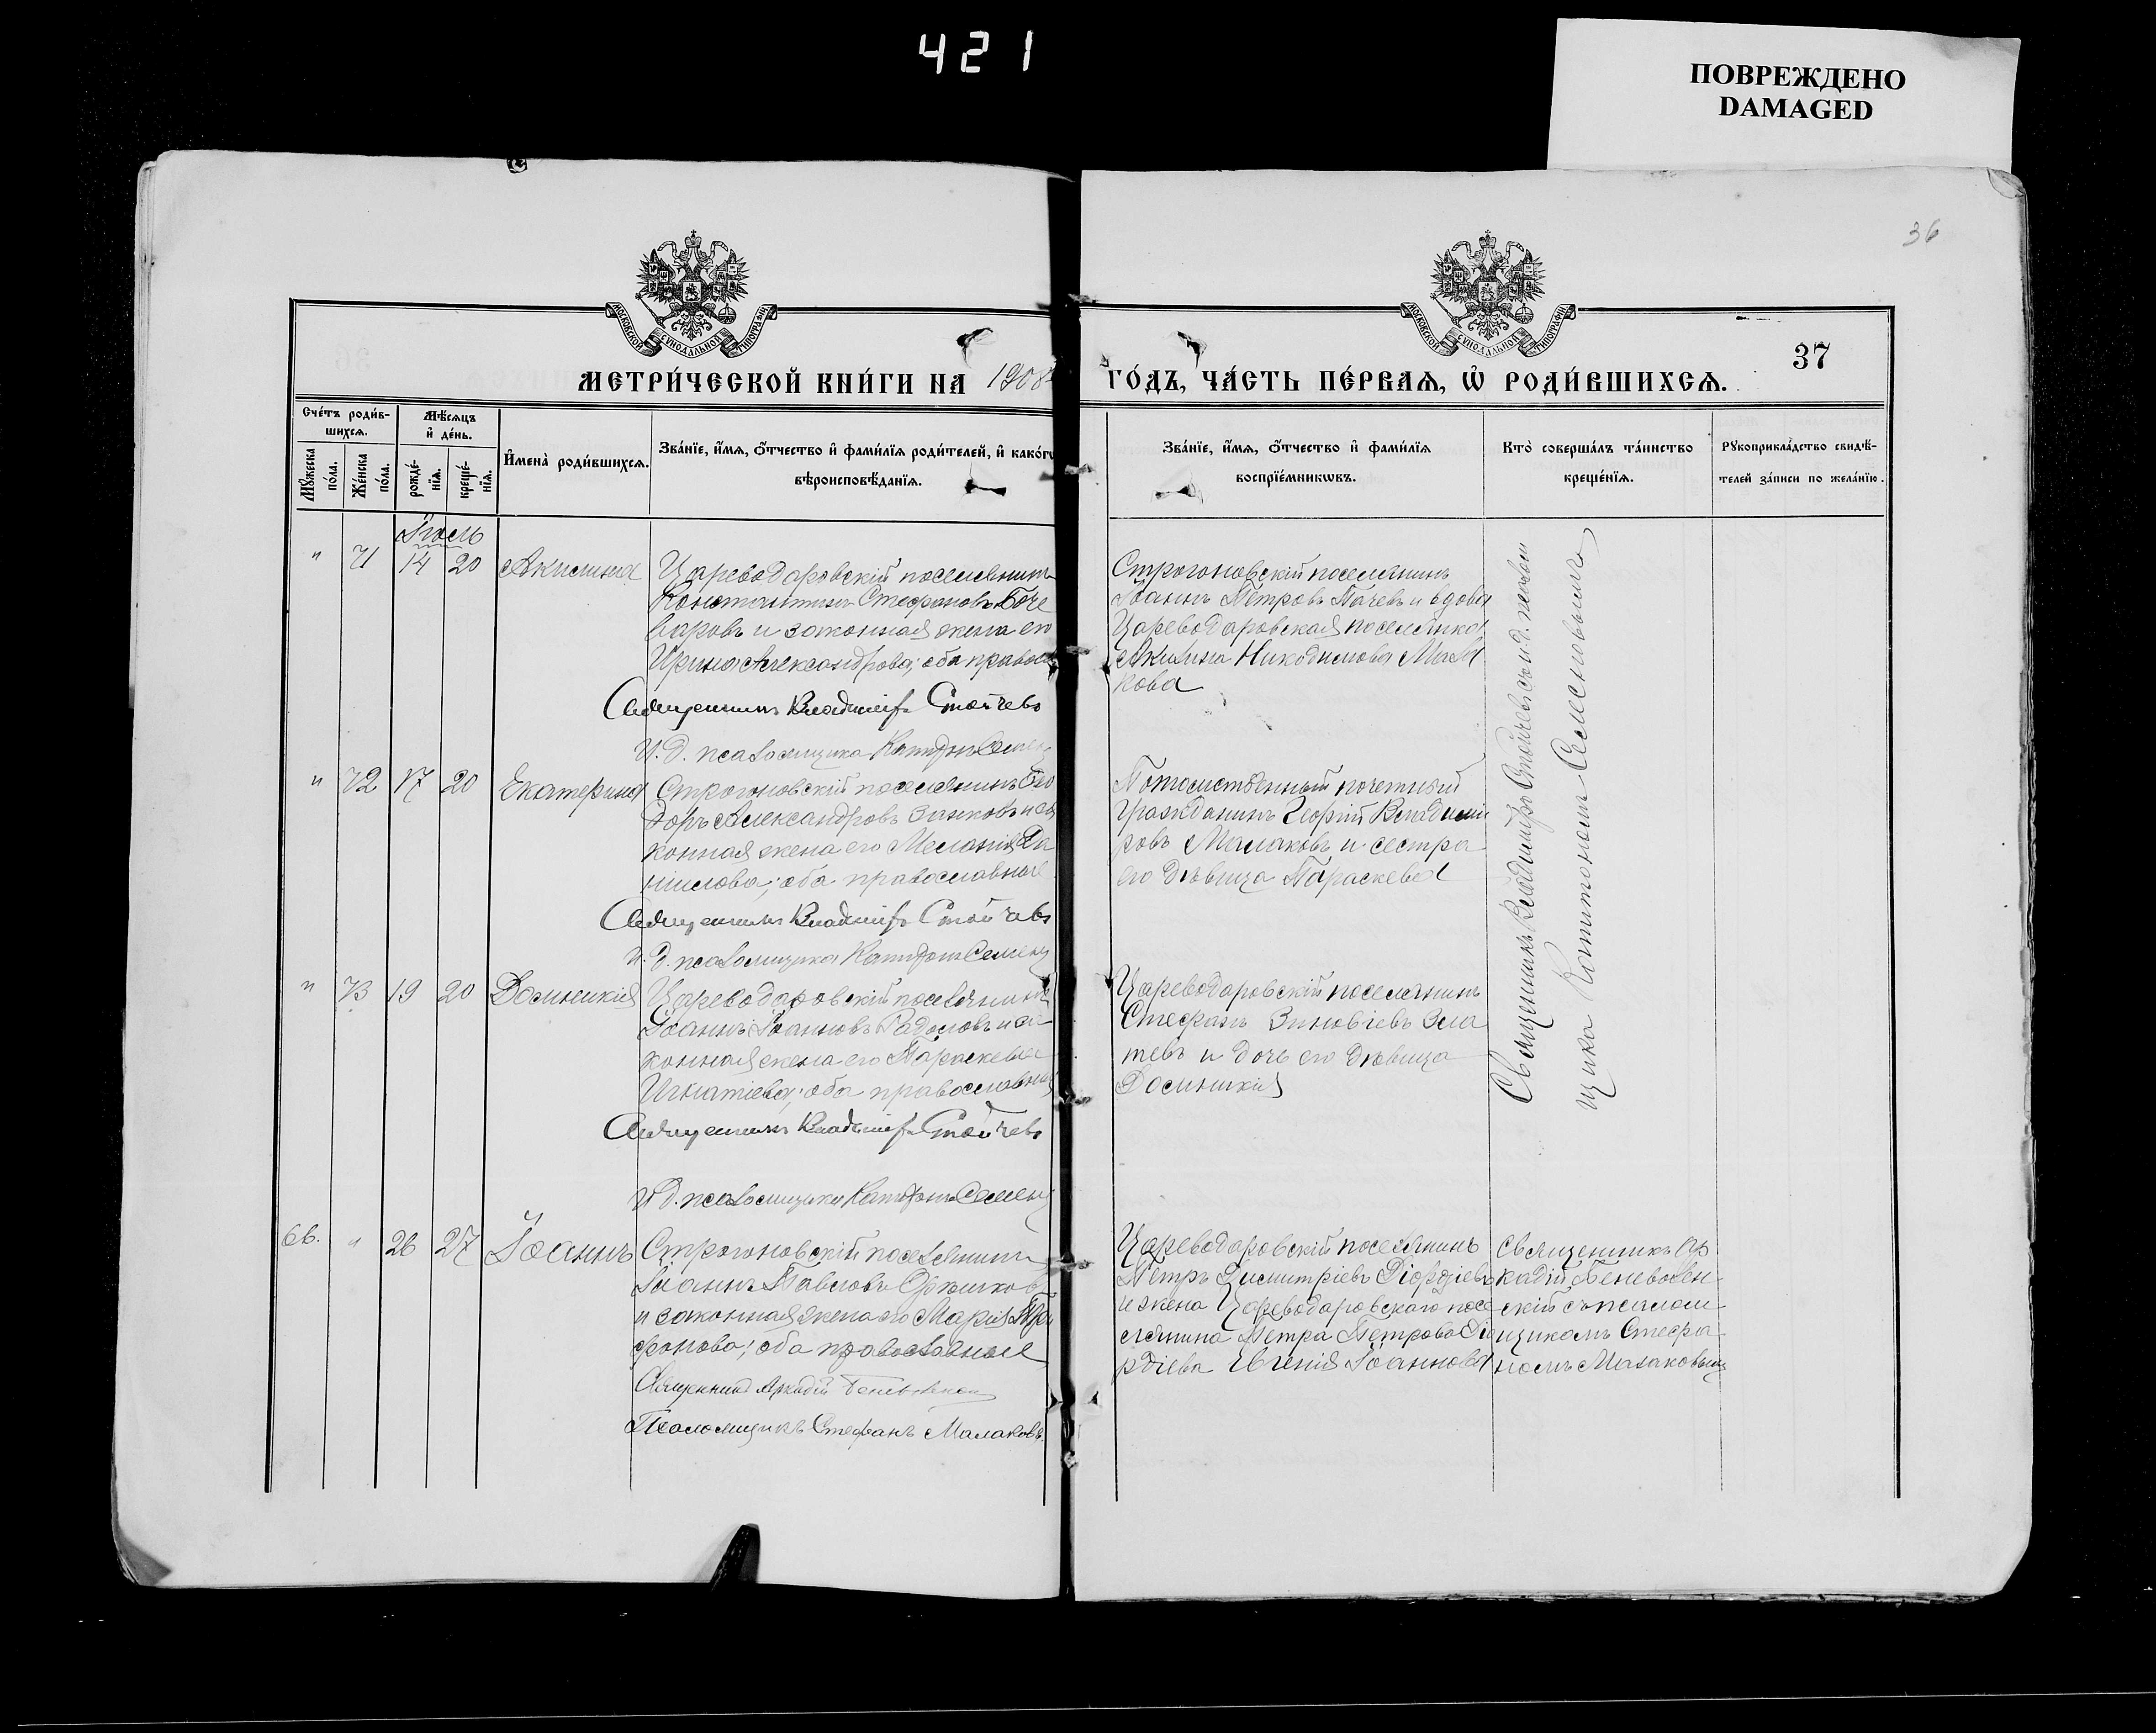 421
ПОВРЕЖДЕНО
DAMAGED
36
МОСКОВСКОЙ СѴНОДАЛЬНОЙ ТИПОГРАФІИ
МОСКОВСКОЙ СѴНОДАЛЬНОЙ ТИПОГРАФІИ
МЕТРИ́ЧЕСКОЙ КНИ́ГИ НА 1908
ГО́ДЪ, ЧА́СТЬ ПЕ́РВАЯ, Ѡ҆ РОДИ́ВШИХСЯ.
37
Сче́тъ роди́в-
шихся.
Мѣ́сяцъ
и҆ де́нь.
Мꙋ́жеска
по́ла.
Же́нска
по́ла.
рожде́-
нїя.
креще́-
нїя.
И҆мена̀ роди́вшихся.
Зва́нїе, и҆́мя, ѻ҆́тчество и҆ фами́лїя роди́телей, и҆ како́гѡ
вѣроисповѣ́данїя.
Зва́нїе, и҆́мя, ѻ҆́тчество и҆ фами́лїя
воспрїе́мникѡвъ.
Кто̀ соверша́лъ та́инство
креще́нїя.
Рꙋкоприкла́дство свидѣ́-
телей за́писи по жела́нїю.
Іюль
" 71 14 20 Акилина
Цареводаровскій поселянинъ
Константинъ Стефановъ Боче
варовъ и законная жена его
Ирина Александрова; оба правос
Священникъ Владиміръ Стойчевъ
И. д. псаломщика Капитонъ Семен
Строгоновскій поселянинъ
Іоаннъ Петровъ Пачевъ и вдова
Цареводаровская поселянка
Акилина Никодимова Мала
кова
Священникъ Владиміръ Стойчевъ съ и. д. псалом
щика Капитономъ Семеновымъ
" 72 17 20 Екатерина
Строгоновскій поселянинъ Ѳео
доръ Александровъ Занковъ и за
конная жена его Меланія Да
ніилова; оба православные
Священникъ Владиміръ Стойчевъ
И. д. псаломщика Капитонъ Семен
Потомственный почетный
гражданинъ Георгій Владимі
ровъ Малаковъ и сестра
его дѣвица Параскева
" 73 19 20 Домникія
Цареводаровскій поселянинъ
Іоаннъ Іоанновъ Радоловъ и за
конная жена его Параскева
Игнатіева; оба православные
Священникъ Владиміръ Стойчевъ
И. д. псаломщика Капитонъ Семен
Цареводаровскій поселянинъ
Стефанъ Зиновіевъ Зла
тевъ и дочь его дѣвица
Домникія
66. " 26 27 Іоаннъ
Строгоновскій поселянинъ
Іоаннъ Павловъ Оржиков
и законная жена его Марія Три
фонова; оба православные
Священникъ Аркадій Беневоленскій
Псаломщикъ Стефанъ Малаковъ.
Цареводаровскій поселянинъ
Петръ Димитріевъ Діордіевъ
и жена Цареводаровскаго посе
лянина Петра Петрова Діо
рдіева Евгенія Іоаннова
Священникъ Ар
кадій Беневолен-
скій съ псалом-
щикомъ Стефа
номъ Малаковымъ